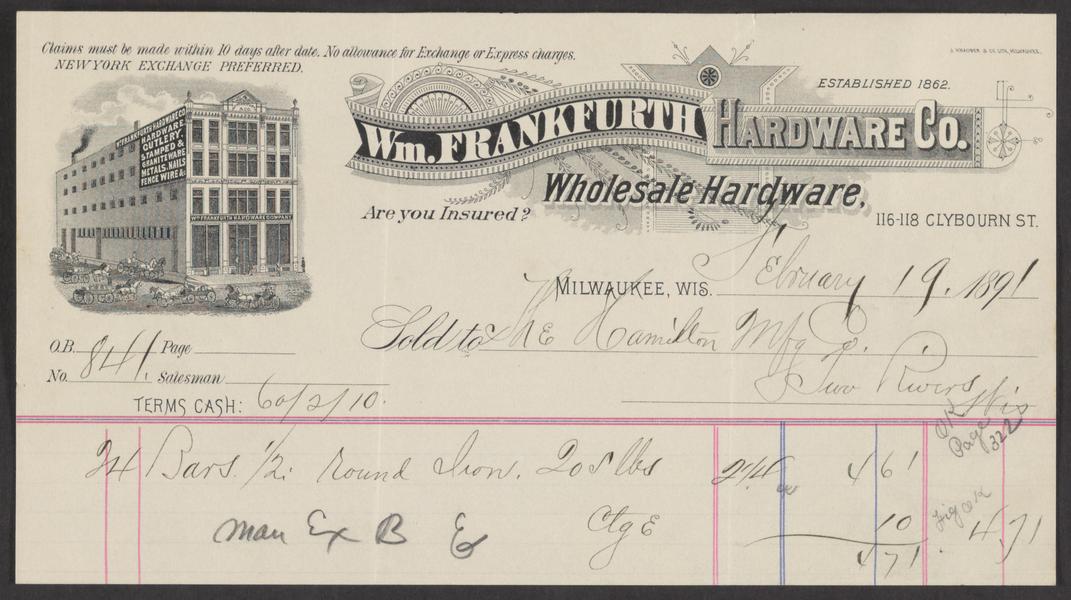 Claims must be made within 10 days after date. No allowance for Exchange or Express charges.
NEW YORK EXCHANGE PREFERRED.
ESTABLISHED 1862.
Wm. FRANKFURTH HARDWARE CO.
Wholesale Hardware,
Are you Insured?
116-118 CLYBOURN ST.
WM FRANKFURTH HARDWARE CO
HARDWARE
CUTLERY,
STAMPED &
GRANITEWARE
METALS, NAILS
FENCE WIRE &c
WM FRANKFURTH HARDWARE COMPANY
MILWAUKEE, WIS. February 19. 1891
Sold to The Hamilton Mfg Co.
Two Rivers Wis
O.B. 841. Page
No. Salesman
TERMS CASH: 60/2/10.
OK
Page
322
24 Bars. 1/2. round Iron. 205 lbs 2 1/4 4 61
Man Ex B
Ctg 10
Fig OK 4.71
4 71